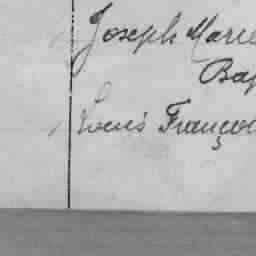 Joseph Marie
Bap
Louis Françoi